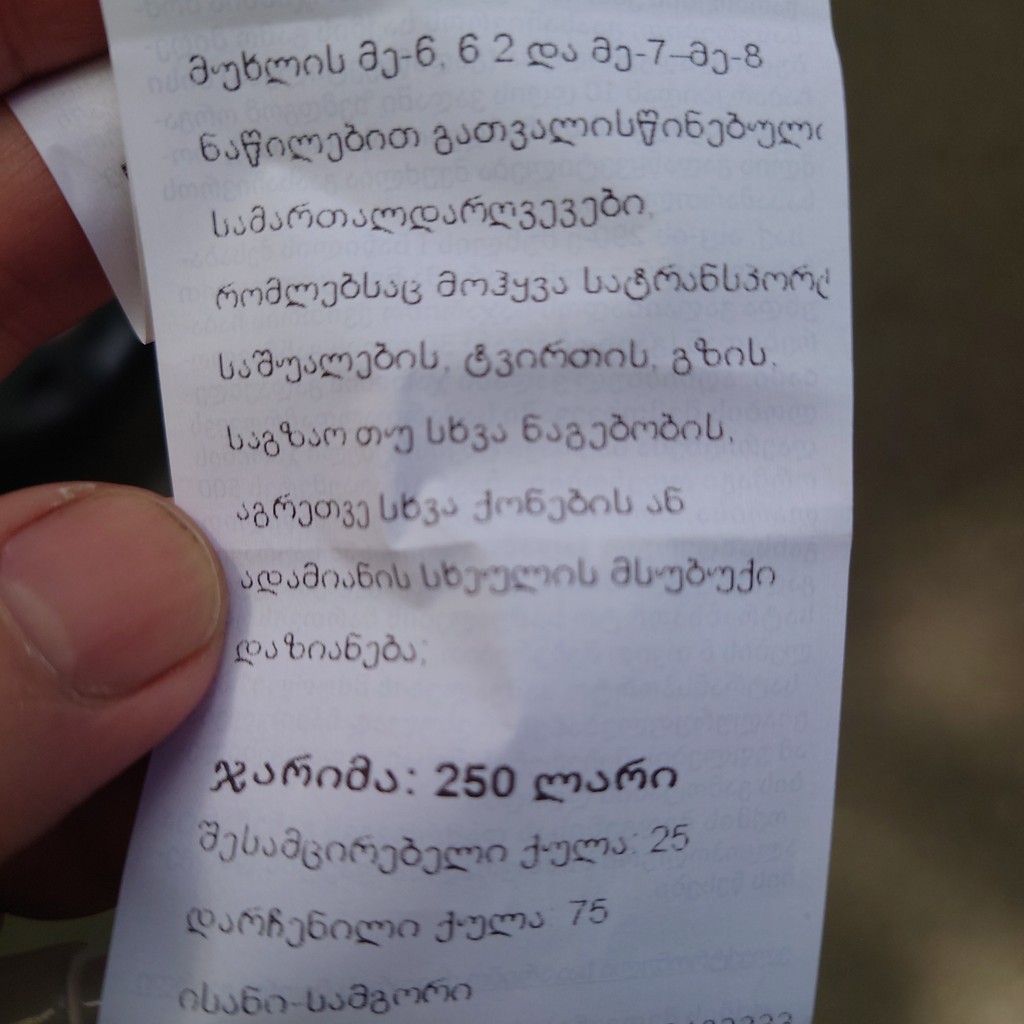 მუხლის მე-6, 6 2 და მე-7–მე-8
ნაწილებით
სამართალდარღვევები,
რომლებსაც მოჰყვა
საშუალების, ტვირთის, გზის,
საგზაო თუ სხვა ნაგებობის,
აგრეთვე სხვა ქონების ან
ადამიანის სხეულის მსუბუქი
დაზიანება;
ჯარიმა: 250 ლარი
შესამცირებელი ქულა: 25
დარჩენილი ქულა: 75
ისანი-სამგორი